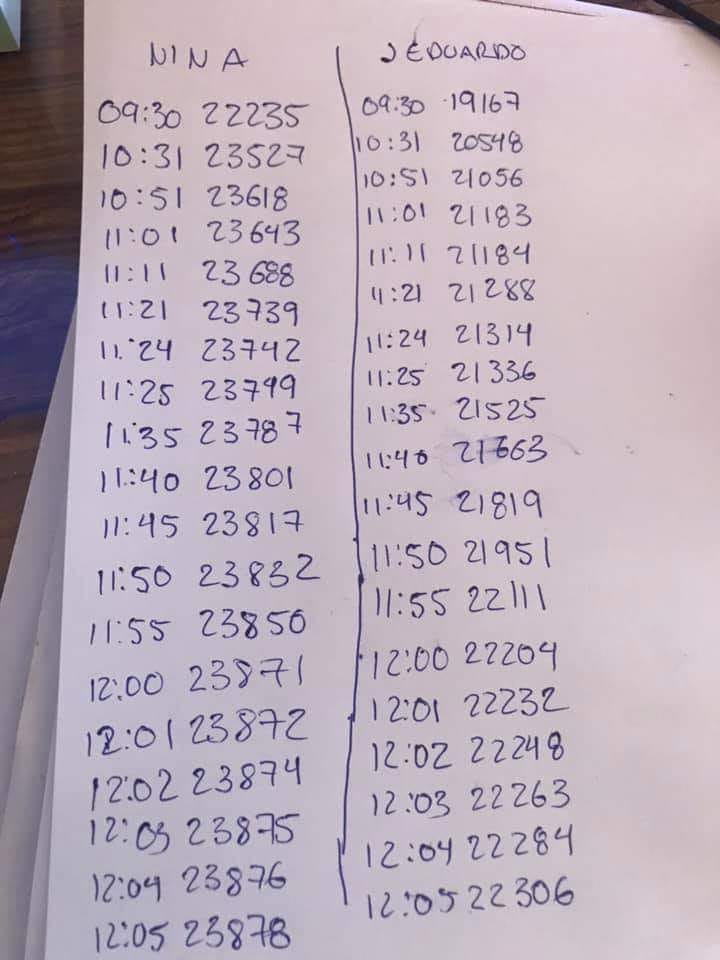 NINA
09:30 22235
10:31 23527
10:51 23618
11:01 23643
11:11 23688
11:21 23739
11:24 23742
11:25
11:35 23787
11:40 23801
11:45 23817
11:50 23832
11:55 23850
12:00 23871
12:01 23872
12:02 23874
12:03 23875
12:04 23876
12:05 23878
J EDUARDO
09:30 19167
10:31 20548
10:51 21056
11:01 21183
11:11 21184
11:21 21288
11:24 21314
11:25 21336
11:35 21525
11:40 21663
11:45 21819
11:50 21951
11:55 22111
12:00 22204
12:01 22232
12:02 22248
12:03 22263
12:04 22284
12:05 22306